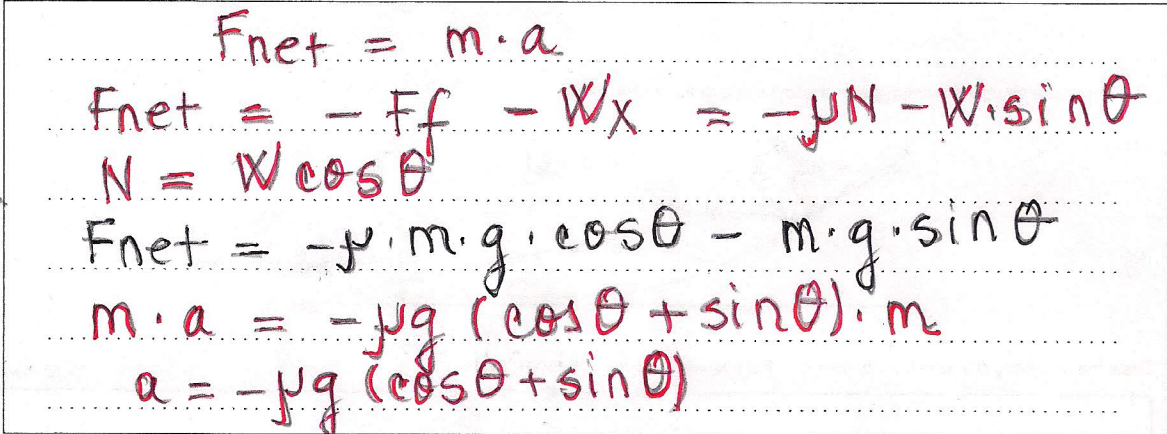 Fnet = m·a
Fnet = - Ff - Wx = -μN - W·sinθ
N = W cosθ
Fnet = -μ·m·g·cosθ - m·g·sinθ
m·a = -μg (cosθ + sinθ)·m
a = -μg (cosθ + sinθ)